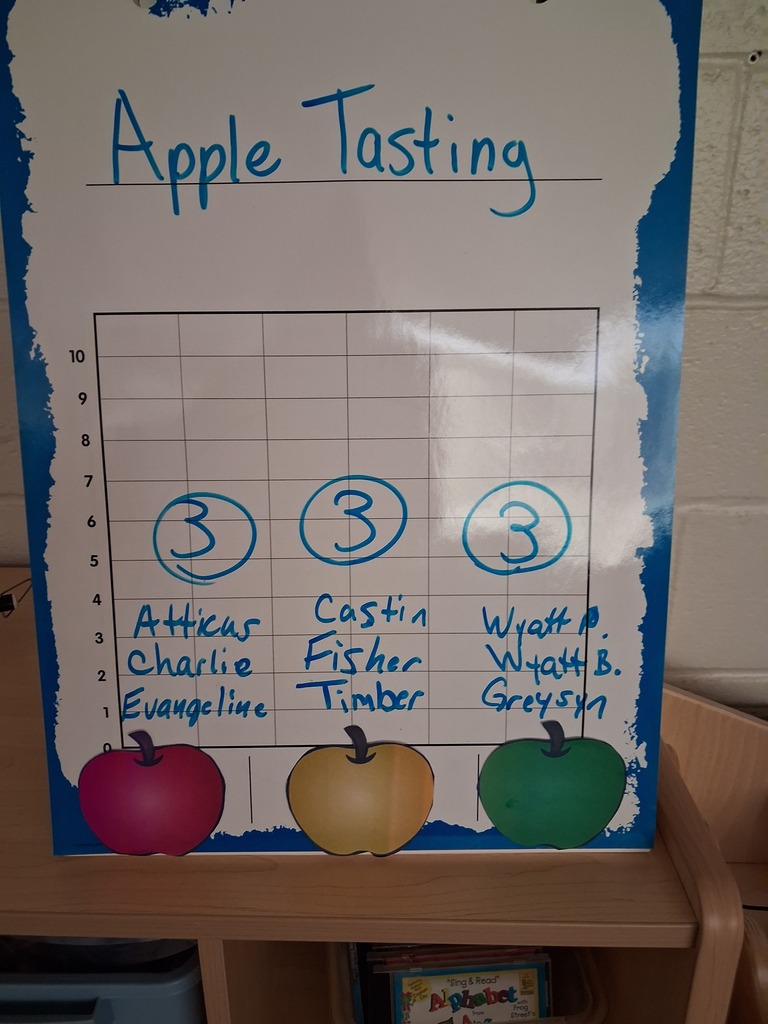 Apple Tasting
10
9
8
7
6
5
4
3
2
1
0
3 3 3
Atticus Castin Wyatt P.
Charlie Fisher Wyatt B.
Evangeline Timber Greysyn
"Sing & Read"
Alphabet
from
with Frog Street's